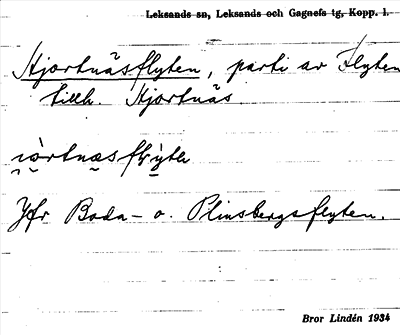 Leksands sn, Leksands och Gagnefs tg, Kopp. l.
Hjortnäsflyten, parti av Flyten
tillh. Hjortnäs.
Jfr Boda- o. Plinsbergsflyten.
Bror Lindén 1934